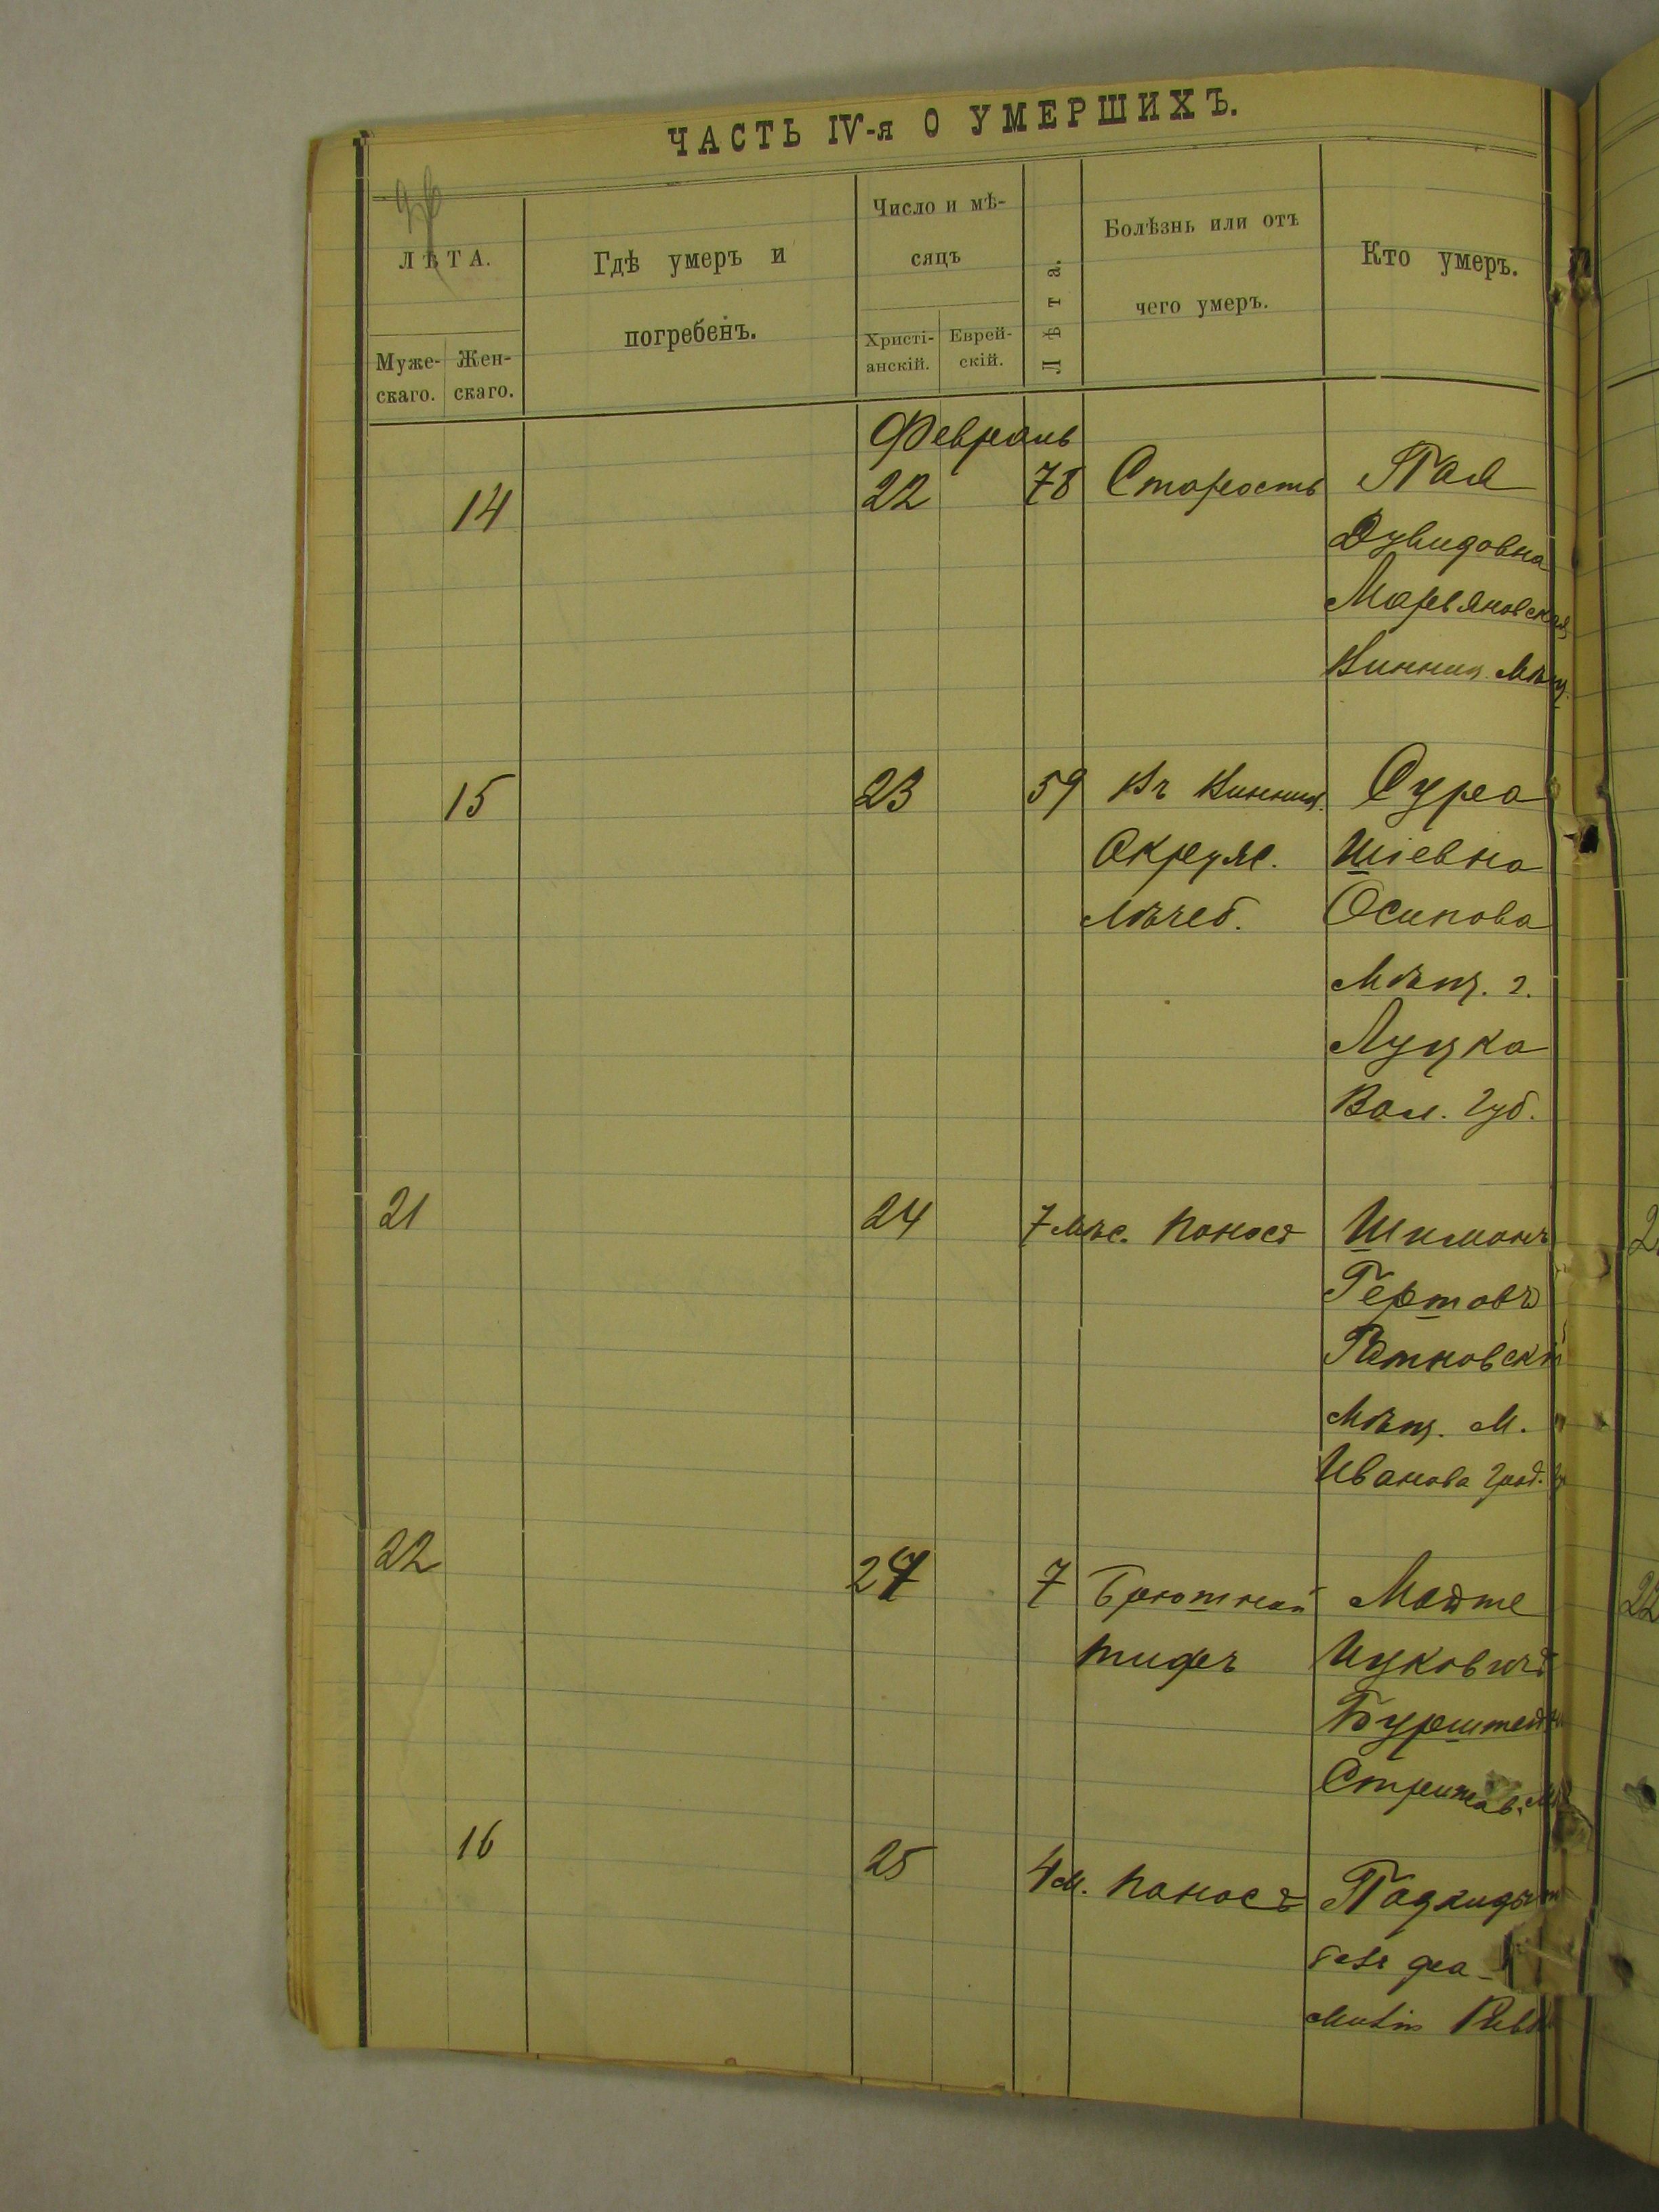 ЧАСТЬ IV-я О УМЕРШИХЪ.
ЛѢТА.
Муже-скаго.
Жен-скаго.
Гдѣ умеръ и
погребенъ.
Число и мѣ-
сяцъ
Христі-анскій.
Еврей-скій.
Лѣта.
Болѣзнь или отъ
чего умеръ.
Кто умеръ.
Февраль
14 22 78 Старость Пая
Дувидовна
Марьяновская
Винниц. Мѣщ.
15 23 59 Въ Винниц. Сура
Окруж. Шіевна
Лѣчеб. Осипова
Мѣщ. г.
Луцка
Вол. Губ.
21 24 7 мѣс. Поносъ Шимонъ
Гершовъ
Ратновскій
Мѣщ. М.
Иванова Грод.
22 27 7 Брюшной
тифъ Ицковичъ
Бурштейнъ
Стрижав.
16 25 4 м. Поносъ